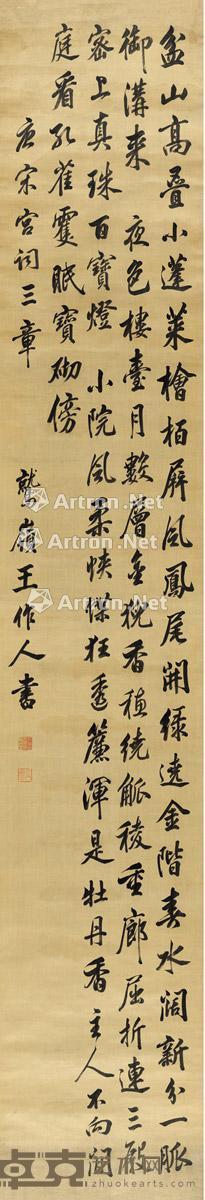 盆山高疊小蓬萊檜栢屏風鳳尾開綠遶金階春水濶新分一脈
御溝來 夜色樓臺月數層金猊香穗繞觚稜重廊屈折連三殿
密上真珠百寶燈 小院風柔蛺蝶狂透簾渾是牡丹香主人不向閒
庭看孔雀雙眠寶砌傍
唐宋宮詞三章
鷲嶺王作人書
Artron.Net
Artron.Net
Artron.Net
Artron.Net
zhuokearts.com